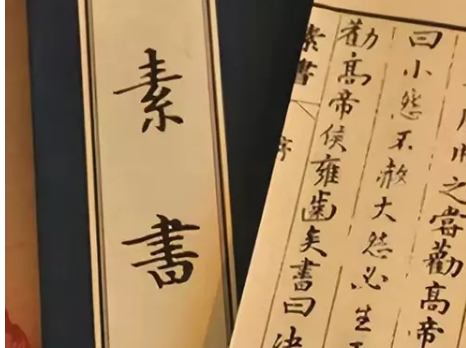 素書
之嘗勸髙帝
曰小怨不赦大怨必生
勸髙帝侯雍齒矣書曰決
素書
序